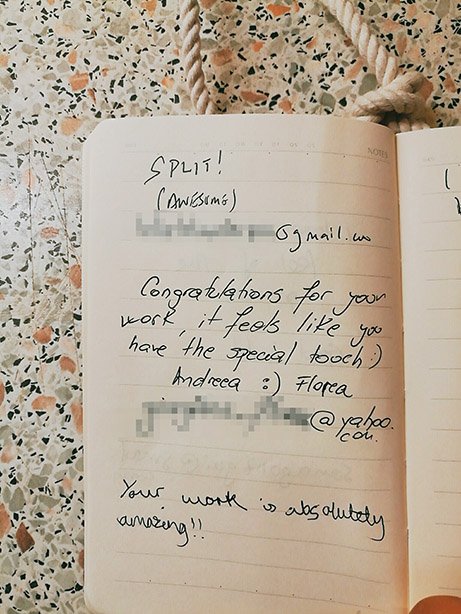 NOTES
SPLIT!
(AWESOME)
@gmail.co
Congratulations for your
work, it feels like you
have the special touch :)
Andreea :) Florea
@yahoo.
com.
Your work is absolutely
amazing!!